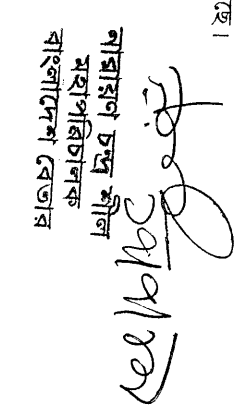 হে।
নারায়ণ চন্দ্র শীল
মহাপরিচালক
বাংলাদেশ বেতার